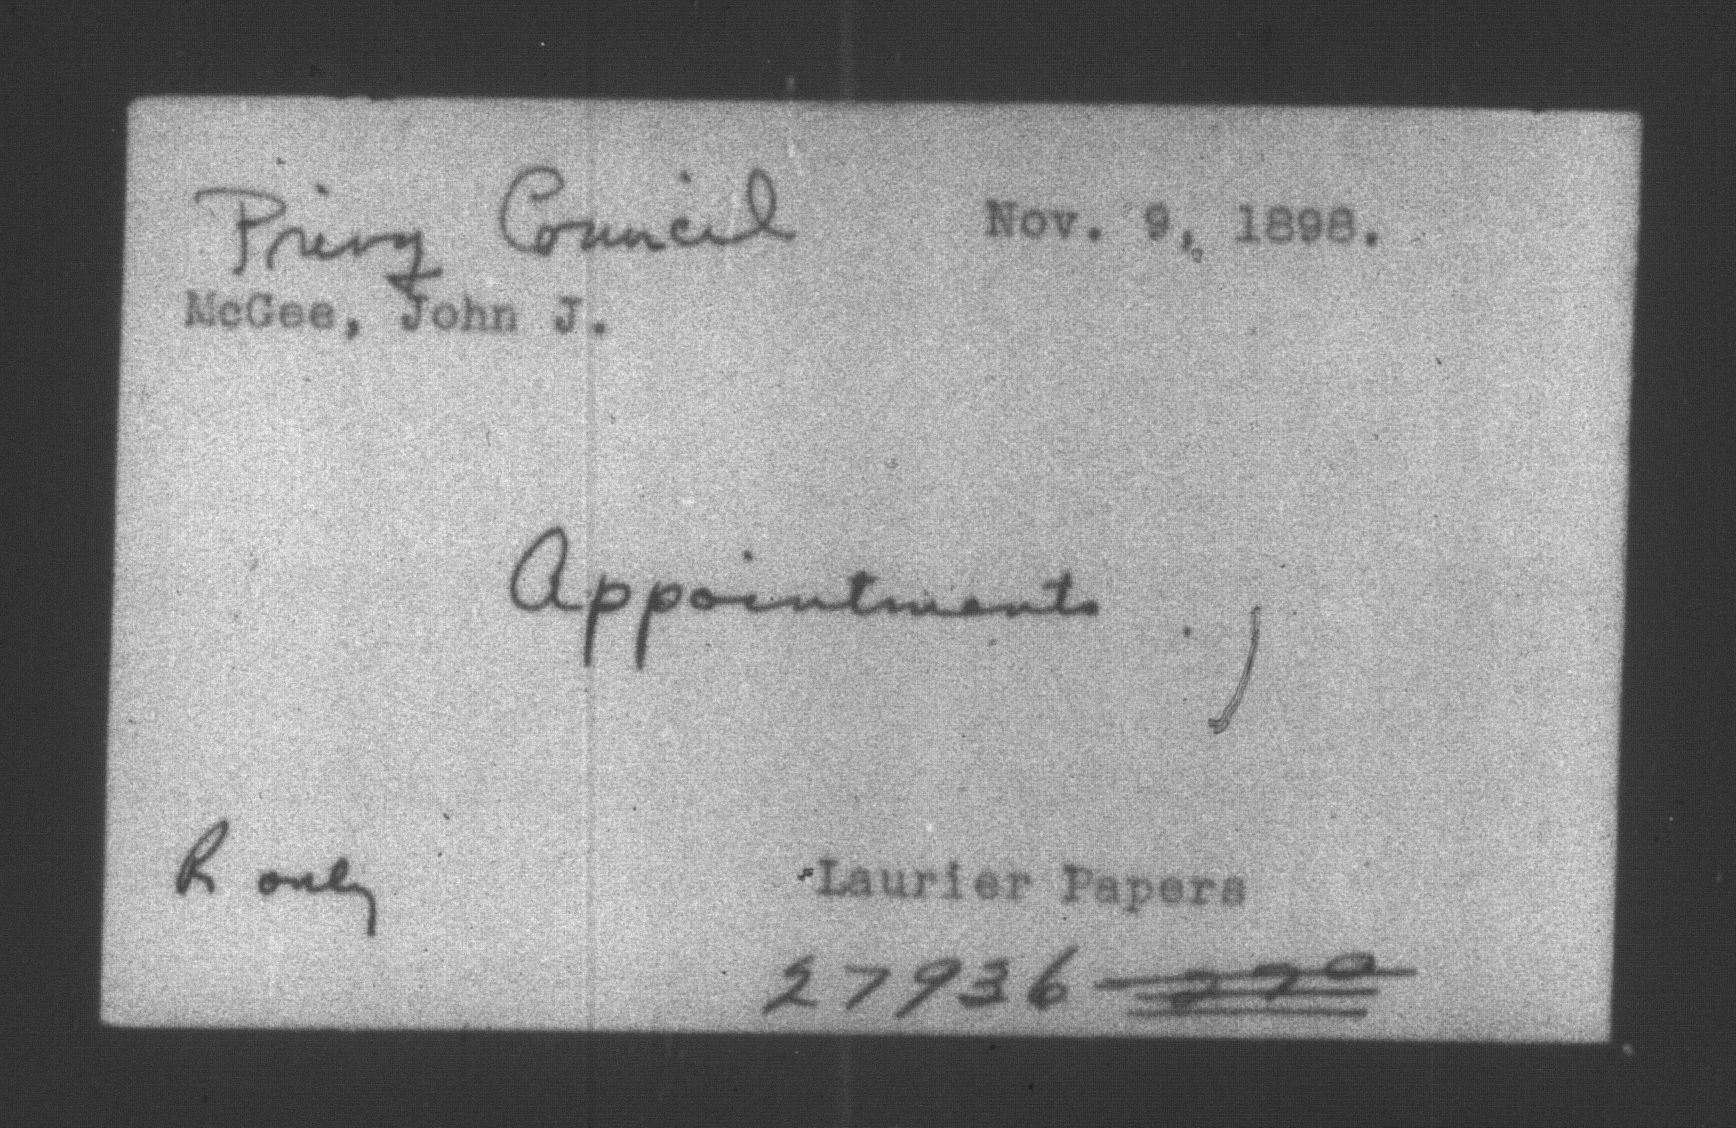 Privy Council Nov. 9, 1898.
McGee, John J.
Appointments
R only
Laurier Papers
27936